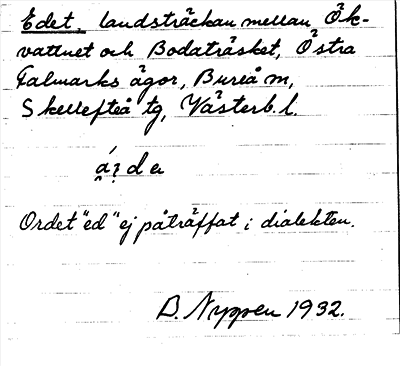 Edet, landsträckan mellan Åk-
vattnet och Bodaträsket, Östra
Falmarks ägor, Bureå sn,
Skellefteå tg, Västerb. l.
Ordet "ed" ej påträffat i dialekten.
B. Nyppen 1932.